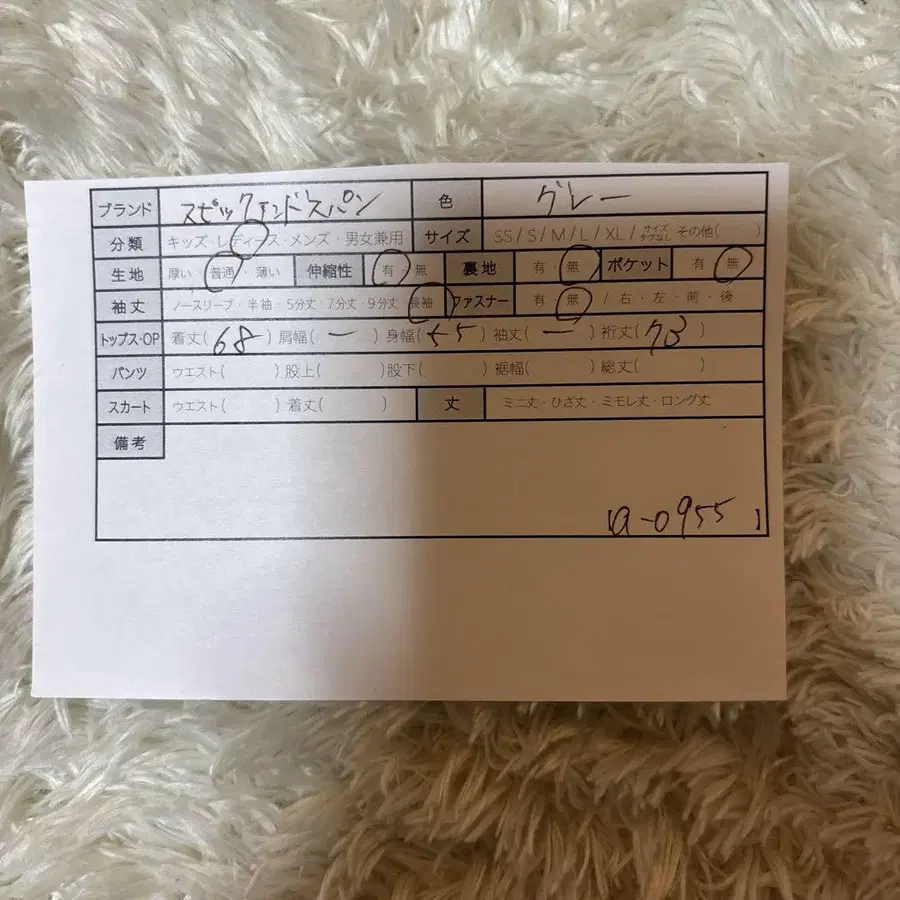 ブランド スピックアンドスパン 色 グレー
分類 キッズ・レディース・メンズ・男女兼用 サイズ SS / S / M / L / XL / サイズタグなし その他( )
生地 厚い・普通・薄い 伸縮性 有・無 裏地 有・無 ポケット 有・無
袖丈 ノースリーブ・半袖・5分丈・7分丈・9分丈・長袖 ファスナー 有・無 / 右・左・前・後
トップス・OP 着丈(68) 肩幅(ー) 身幅(55) 袖丈(ー) 裄丈(73)
パンツ ウエスト( ) 股上( ) 股下( ) 裾幅( ) 総丈( )
スカート ウエスト( ) 着丈( ) 丈 ミニ丈・ひざ丈・ミモレ丈・ロング丈
備考
【a-0955 】